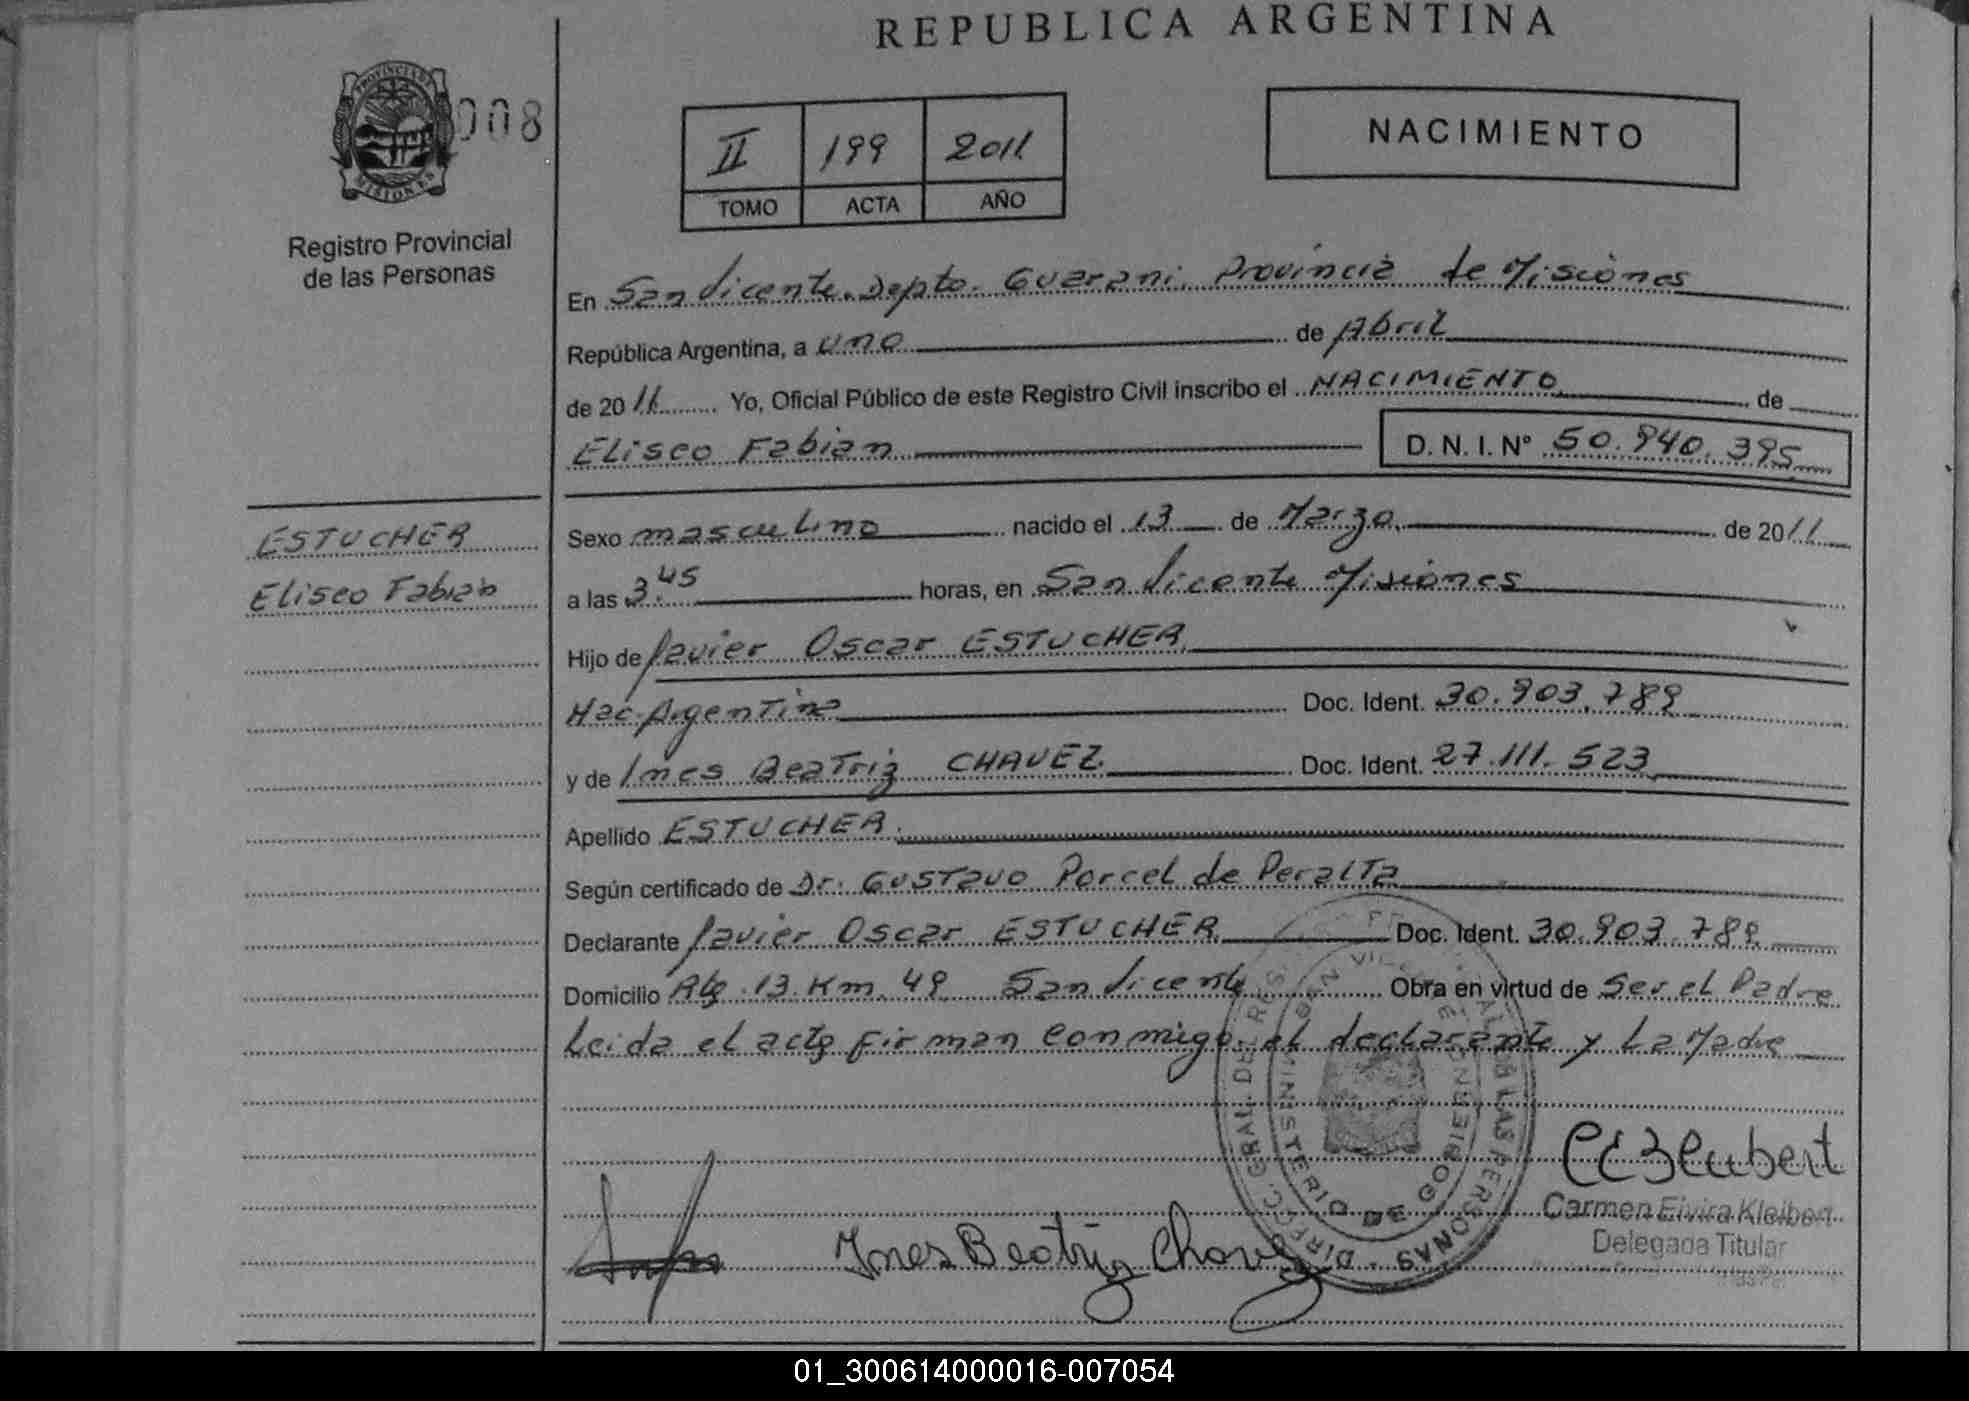 REPUBLICA ARGENTINA
PROVINCIA DE
MISIONES
008
Registro Provincial
de las Personas
II 199 2011
TOMO ACTA AÑO
NACIMIENTO
En San Vicente. Depto. Guarani. Provincia de Misiones
República Argentina, a uno de Abril
de 2011 Yo, Oficial Público de este Registro Civil inscribo el NACIMIENTO de
Eliseo Fabian D. N. I. Nº 50.940.395
ESTUCHER
Eliseo Fabian
Sexo masculino nacido el 13 de Marzo de 2011
a las 3.45 horas, en San Vicente Misiones
Hijo de Javier Oscar ESTUCHER
Nac. Argentina Doc. Ident. 30.903.789
y de Ines Beatriz CHAVEZ Doc. Ident. 27.111.523
Apellido ESTUCHER.
Según certificado de Dr. Gustavo Porcel de Peralta
Declarante Javier Oscar ESTUCHER Doc. Ident. 30.903.789
Domicilio Rta. 13 Km. 49 San Vicente Obra en virtud de Ser el Padre
Leida el acta firman conmigo el declarante y La Madre
DIRECC. GRAL. DEL REG. DE LAS PERSONAS
MINISTERIO DE GOBIERNO
Ines Beatriz Chavez
Carmen Elvira Kleibert
Delegada Titular
01_300614000016-007054